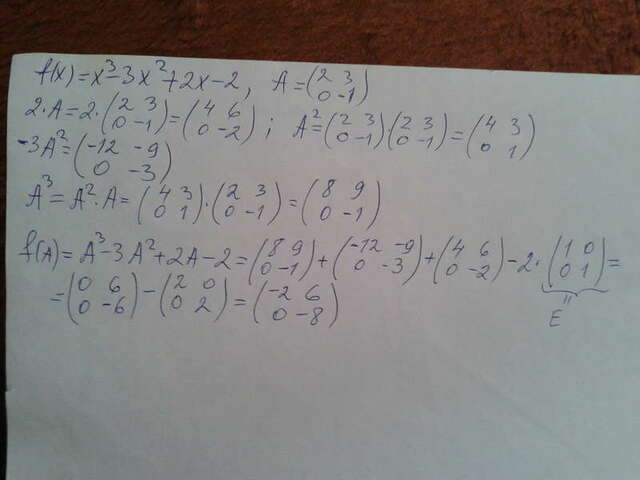 f(x) = x³ - 3x² + 2x - 2, A = (2 3; 0 -1)
2·A = 2·(2 3; 0 -1) = (4 6; 0 -2); A² = (2 3; 0 -1)·(2 3; 0 -1) = (4 3; 0 1)
-3A² = (-12 -9; 0 -3)
A³ = A²·A = (4 3; 0 1)·(2 3; 0 -1) = (8 9; 0 -1)
f(A) = A³ - 3A² + 2A - 2 = (8 9; 0 -1) + (-12 -9; 0 -3) + (4 6; 0 -2) - 2·(1 0; 0 1) =
" E
= (0 6; 0 -6) - (2 0; 0 2) = (-2 6; 0 -8)